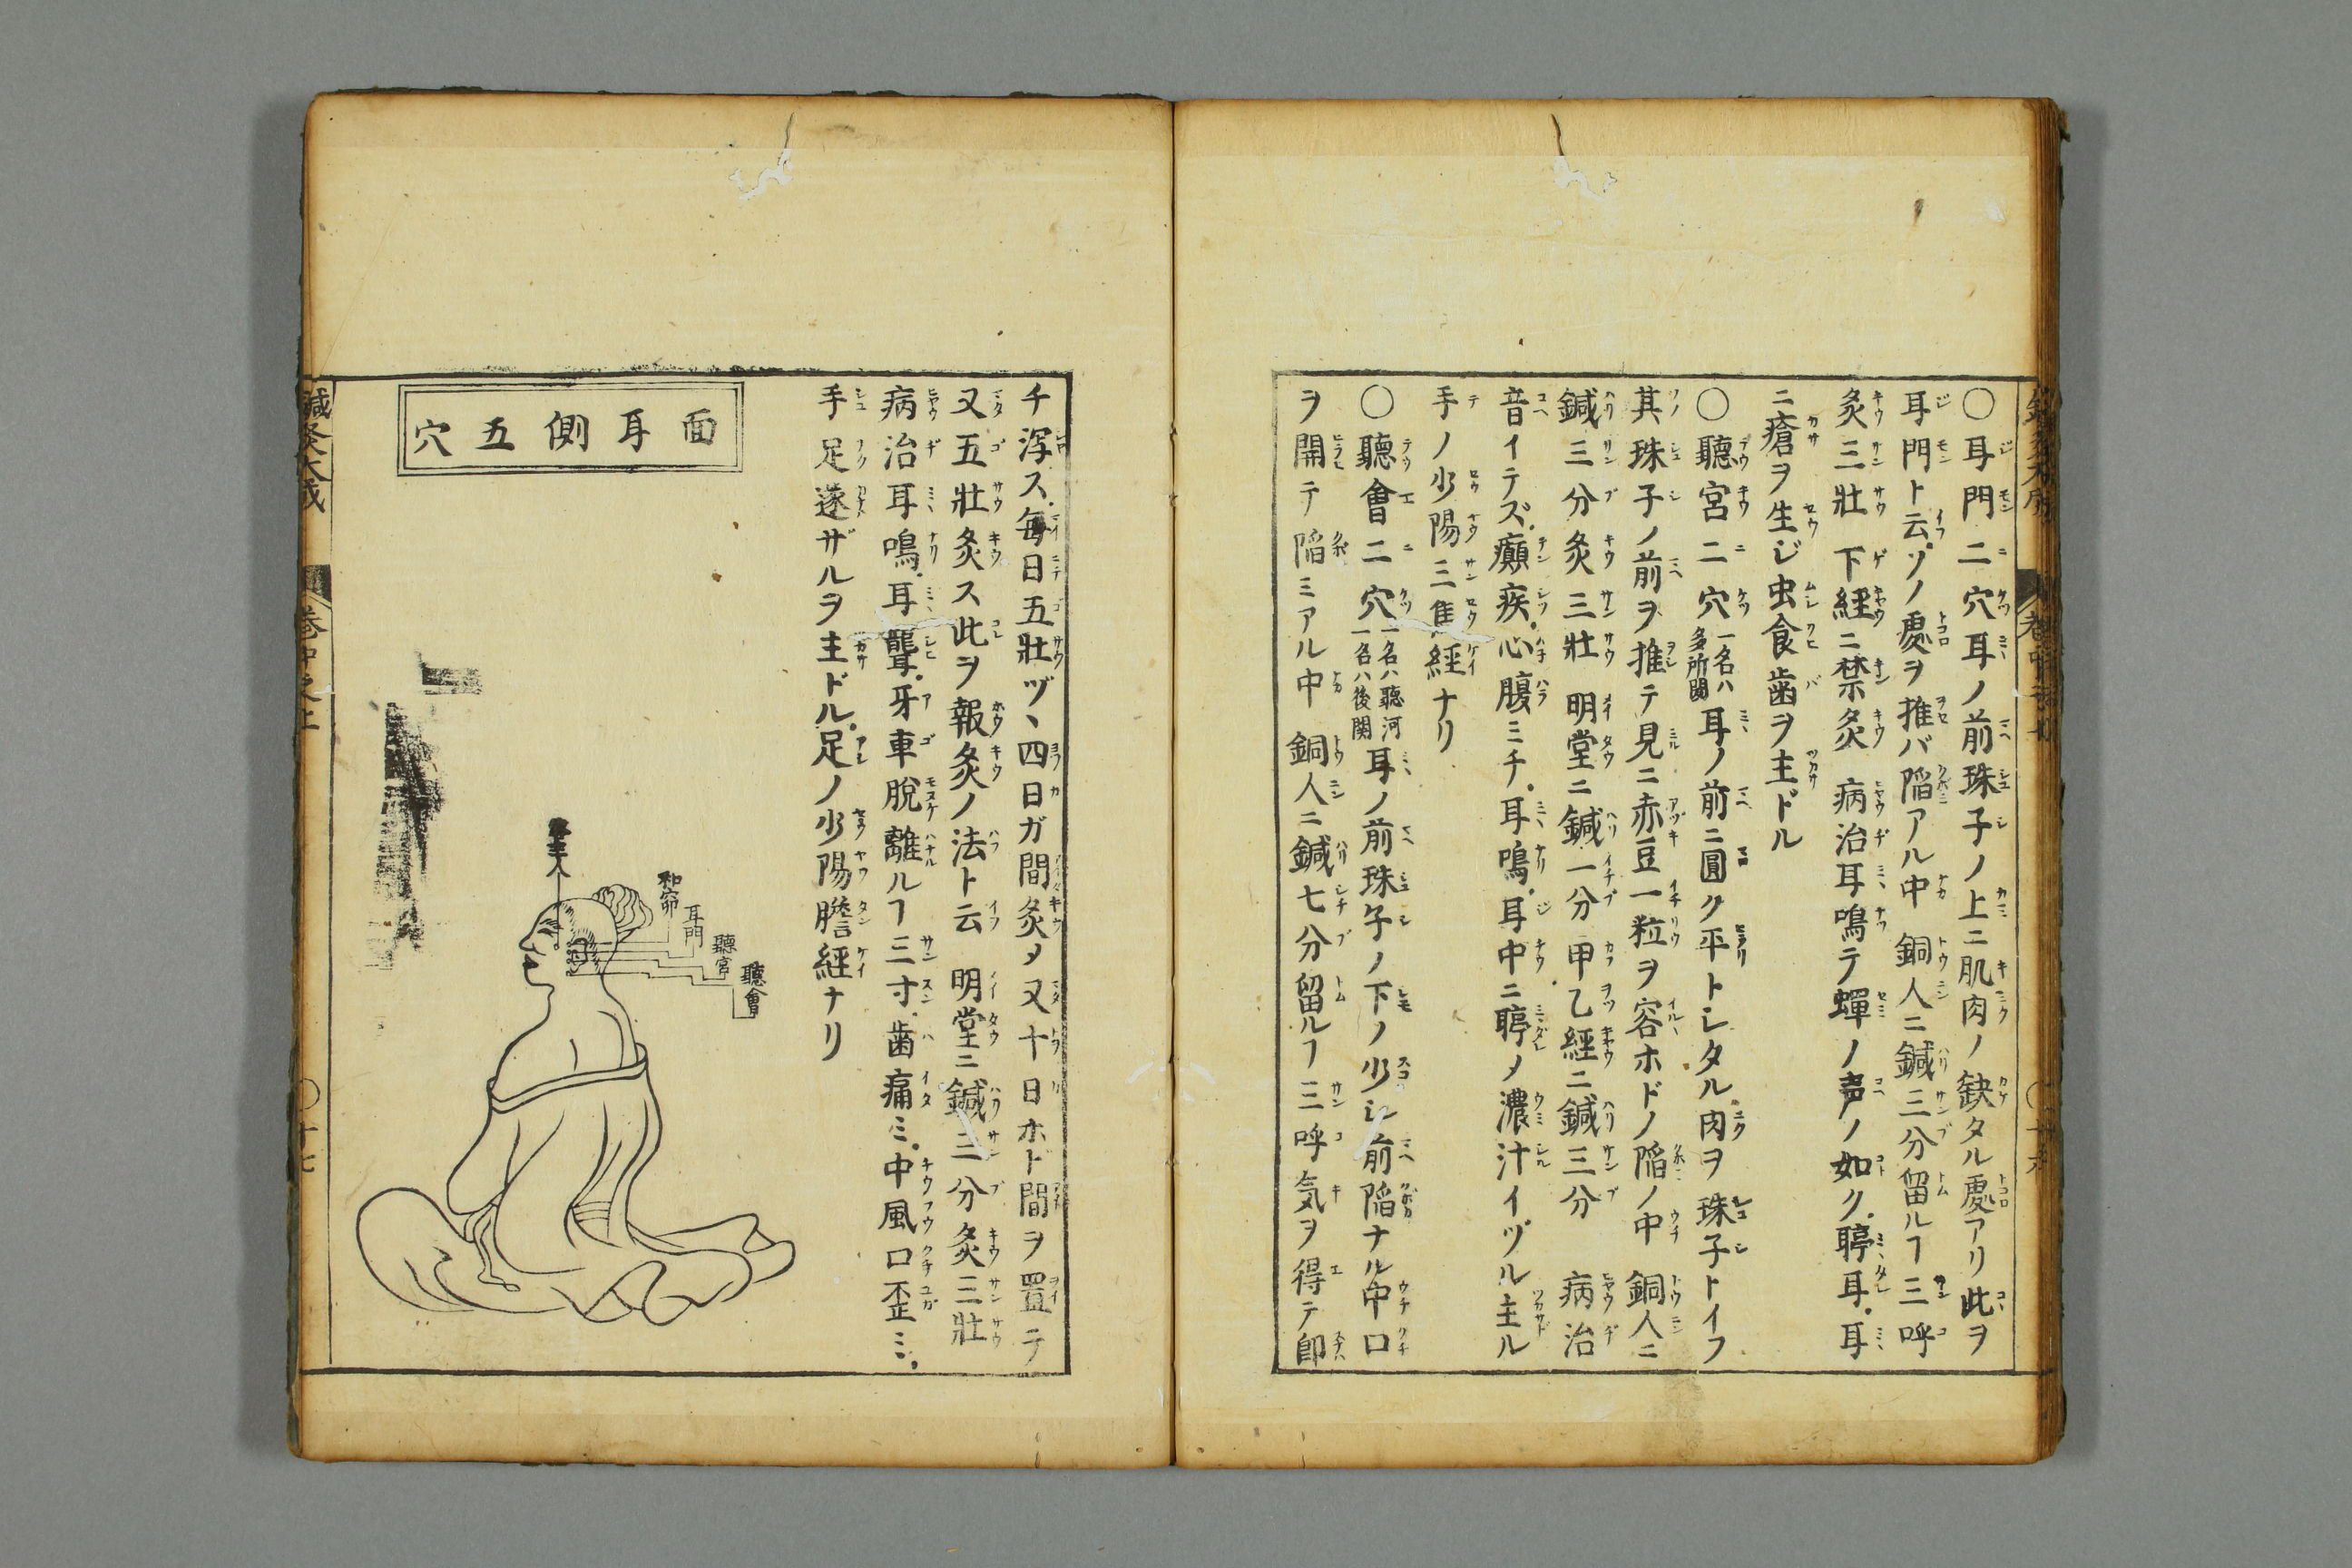 〇耳門二穴耳ノ前珠子ノ上ニ肌肉ノ缺タル處アリ此ヲ
耳門ト云ソノ處ヲ推バ陷アル中 銅人ニ鍼三分留ルヿ三呼
灸三壯 下經ニ禁灸 病治耳鳴テ蟬ノ声ノ如ク聤耳耳
ニ瘡ヲ生ジ虫食歯ヲ主ドル
〇聽宮二穴一名ハ多所聞耳ノ前ニ圓ク平トレタル肉ヲ珠子トイフ
其珠子ノ前ヲ推テ見ニ赤豆一粒ヲ容ホドノ陷ノ中 銅人ニ
鍼三分灸三壯 明堂ニ鍼一分甲乙經ニ鍼三分 病治
音イテズ癲疾心腹ミチ耳鳴耳中ニ聤ノ濃汁イヅル主ル
手ノ少陽三焦經ナリ
〇聽會二穴一名ハ聽河一名ハ後関耳ノ前珠子ノ下ノ少シ前陷ナル中口
ヲ開テ陷ミアル中 銅人ニ鍼七分留ルヿ三呼気ヲ得テ即
チ瀉ス毎日五壯ヅヽ四日ガ間灸メ又十日ホド間ヲ置テ
又五壯灸ス此ヲ報灸ノ法ト云 明堂ニ鍼三分灸三壯
病治耳鳴耳聾牙車脫離ルヿ三寸歯痛ミ中風口歪ミ
手足遂ザルヲ主ドル足ノ少陽膽經ナリ
面耳側五穴
和窌
耳門
聽宮
聽會
鍼灸大成
巻中之上
〇十七